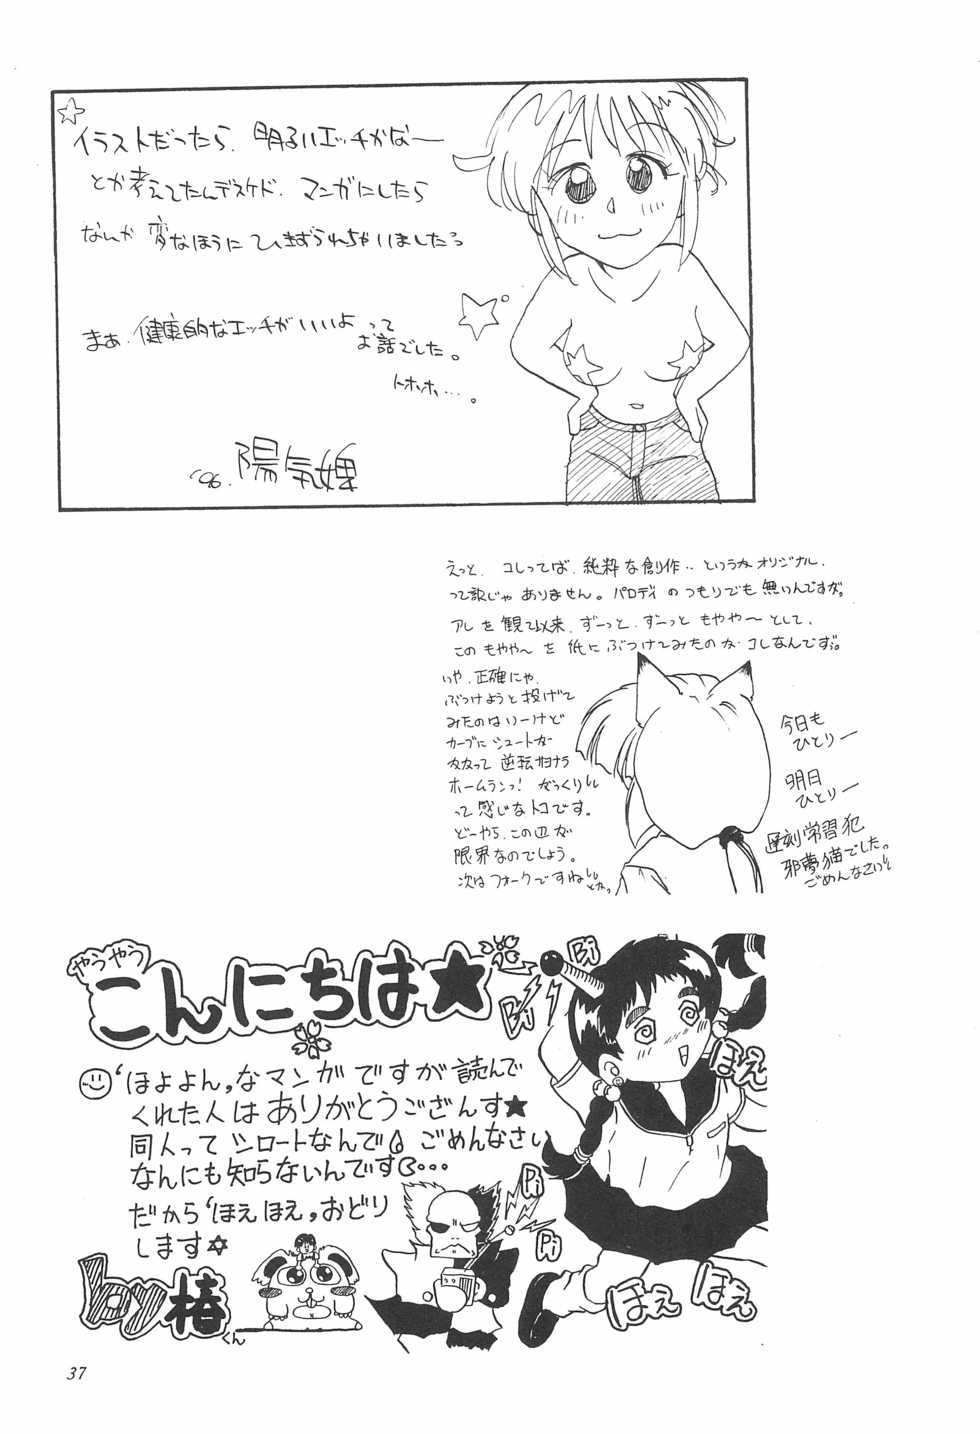 イラストだったら、明るいエッチかなー
とか考えてたんデスケド、マンガにしたら
なんか変なほうにひきずられちゃいましたっ
まぁ、健康的なエッチがいいよって
お話でした。
トホホ…。
'96. 陽気婢
えっと、コレってば、純粋な創作‥というかオリジナル、
って訳じゃありません。パロディのつもりでも無いんですが。
アレを観て以来、ずーっと、ずーっともやや〜として、
このもやや〜を紙にぶつけてみたのがコレなんですが。
いや、正確にゃ、
ぶつけようと投げて
みたのはいーけど
カーブにシュートが
かかって逆転サヨナラ
ホームランっ! がっくり
って感じなトコです。
どーやら、この辺が
限界なのでしょう。
次はフォークですね
今日も
ひとりー
明日
ひとりー
遅刻常習犯
邪夢猫でした。
ごめんなさい
やうやう
こんにちは★
'ほよよん,なマンガですが読んで
くれた人はありがとうござんす★
同人ってシロートなんで ごめんなさい
なんにも知らないんです…
だから'ほえほえ,おどり
します☆
by 椿くん
Bi
Bi
Pi
Pi
ほえ
ほえ
ほえ
37